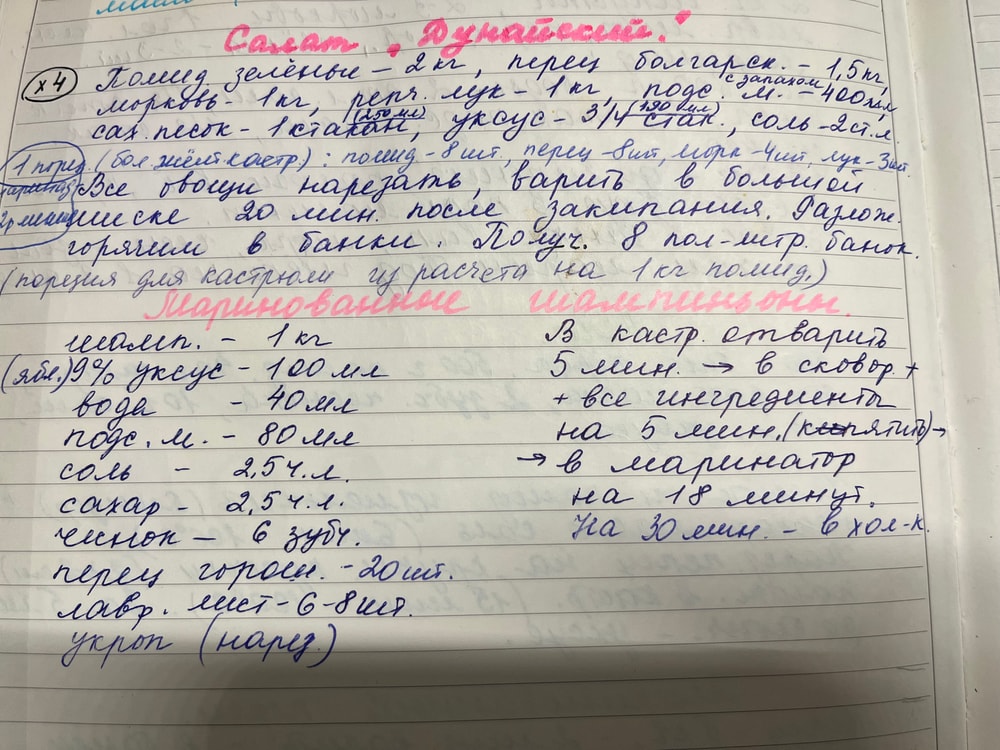 Салат „Дунайский."
х4
Помид зелёные – 2 кг, перец болгарск. – 1,5 кг,
морковь – 1 кг, репч. лук – 1 кг, подс. м. – 400 мл,
с запахом
сах. песок – 1 стакан, уксус – 3/4 стак., соль – 2 ст. л.
(250 мл) (190 мл)
1 порц. (бол. жёлт кастр.): помид – 8 шт, перец – 8 шт, морк – 4 шт, лук – 3 шт.
Все овощи нарезать, варить в большой
миске 20 мин. после закипания. Разлож.
горячим в банки. Получ. 8 пол-литр. банок.
(порция для кастрюли из расчета на 1 кг помид.)
Маринованные шампиньоны.
шамп. – 1 кг
(ябл.) 9% уксус – 100 мл
вода – 40 мл
подс. м. – 80 мл
соль – 2,5 ч. л.
сахар – 2,5 ч. л.
чеснок – 6 зубч.
перец горош. – 20 шт.
лавр. лист – 6-8 шт.
укроп (наред)
В кастр. отварить
5 мин. → в сковор. +
+ все ингредиенты
на 5 мин. (кипятить) →
→ в маринатор
на 18 минут.
На 30 мин. – в хол-к.